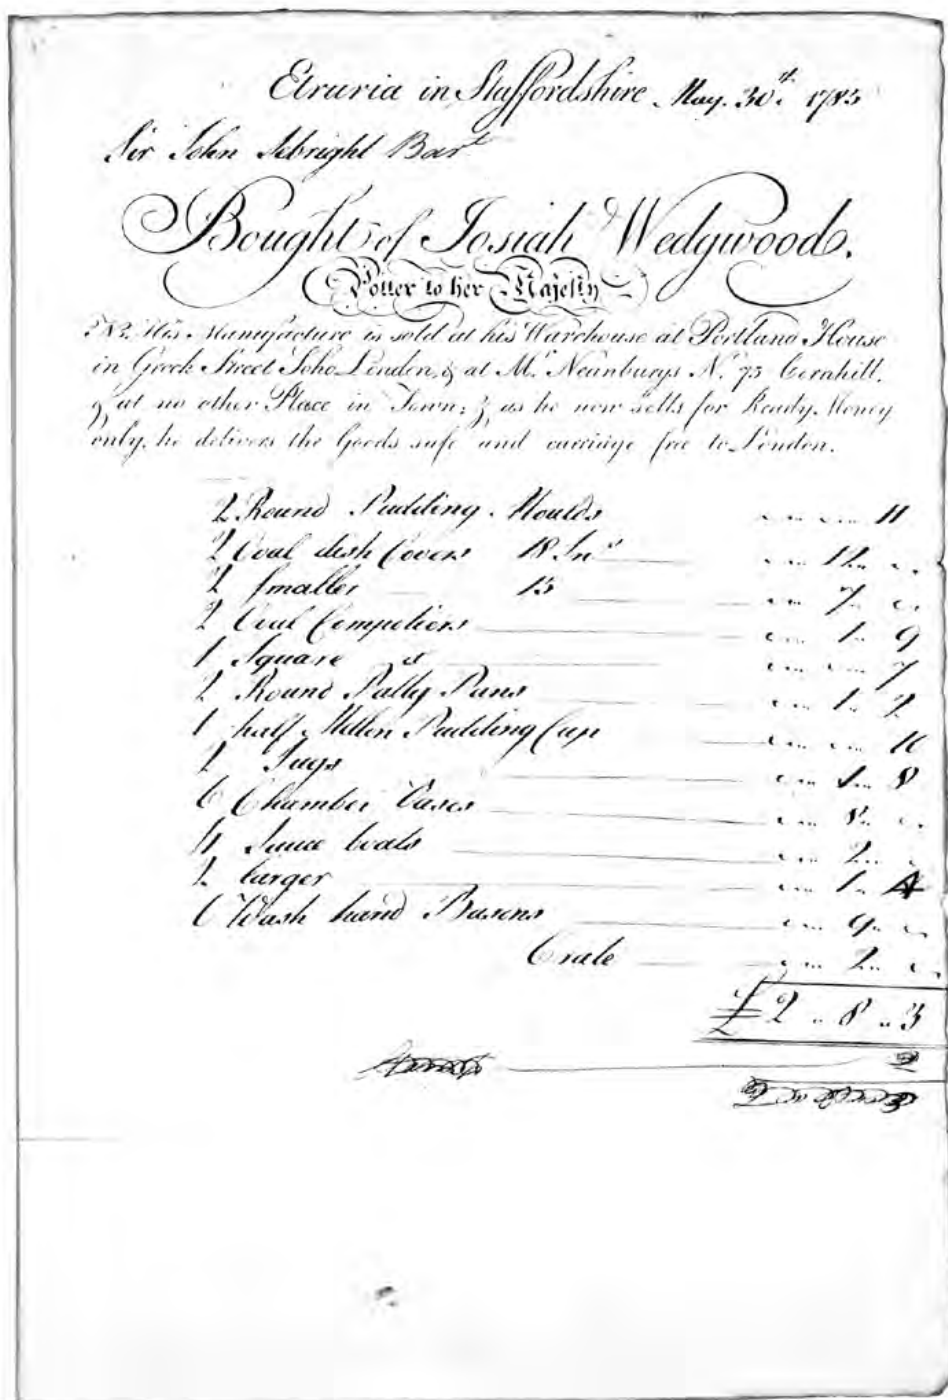 Etruria in Staffordshire May. 30th. 1783
Sir John Sebright Bart
Bought of Josiah Wedgwood.
Potter to her Majesty
NB. His Manufacture is sold at his Warehouse at Portland House
in Greek Street Soho London, & at Mr. N. 75 Cornhill.
& at no other Place in Town; & as he now sells for Ready Money
only, he delivers the Goods safe and carriage free to London.
2 Round Pudding Moulds 11
2 Oval dish Covers 18 Ins 12
2 smaller 15 7
2 Oval Compotiers 1 9
1 Square do 7
2 Round Patty Pans 1 2
1 half Mellon Pudding Cup 10
2 Jugs 1 8
6 Chamber Vases 8
4 Sauce boats 2
2 larger 1 4
6 Wash hand Basons 9
Crate 2
£2 8 3